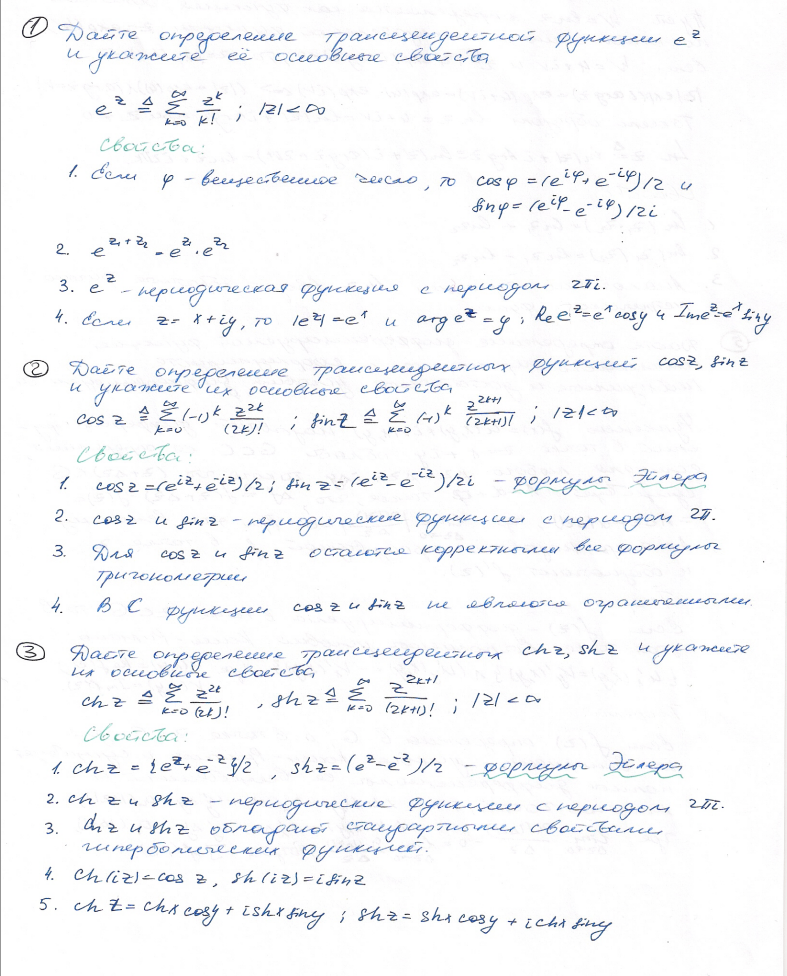 ① Дайте определение трансцендентной функции e^z
и укажите её основные свойства
e^z ≜ ∑_{k=0}^{∞} z^k/k! ; |z|<∞
Свойства:
1. Если φ - вещественное число, то cosφ = (e^{iφ}+e^{-iφ})/2 и
sinφ = (e^{iφ}-e^{-iφ})/2i
2. e^{z₁+z₂} = e^{z₁}·e^{z₂}
3. e^z - периодическая функция с периодом 2πi.
4. Если z = x+iy, то |e^z| = e^x и arg e^z = y ; Re e^z = e^x cosy и Im e^z = e^x siny
② Дайте определение трансцендентных функций cosz, sinz
и укажите их основные свойства
cos z ≜ ∑_{k=0}^{∞} (-1)^k z^{2k}/(2k)! ; sin z ≜ ∑_{k=0}^{∞} (-1)^k z^{2k+1}/(2k+1)! ; |z|<∞
Свойства:
1. cos z = (e^{iz}+e^{-iz})/2 ; sin z = (e^{iz}-e^{-iz})/2i - формулы Эйлера
2. cosz и sinz - периодические функции с периодом 2π.
3. Для cosz и sinz остаются корректными все формулы
тригонометрии
4. В C функции cosz и sinz не являются ограниченными.
③ Дайте определение трансцендентных ch z, sh z и укажите
их основные свойства
ch z ≜ ∑_{k=0}^{∞} z^{2k}/(2k)! , sh z ≜ ∑_{k=0}^{∞} z^{2k+1}/(2k+1)! ; |z|<∞
Свойства:
1. ch z = {e^z+e^{-z}}/2 , sh z = (e^z-e^{-z})/2 - формулы Эйлера
2. ch z и sh z - периодические функции с периодом 2πi.
3. ch z и sh z обладают стандартными свойствами
гиперболических функций.
4. ch(iz) = cos z, sh(iz) = i sin z
5. ch z = chx cosy + i shx siny ; sh z = shx cosy + i chx siny